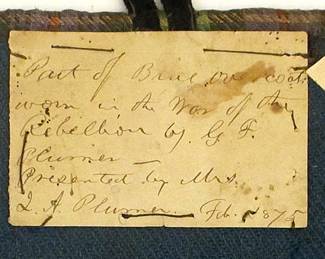 Part of Blue over coat
worn in the War of the
Rebellion by G. F.
Plumer —
Presented by Mrs.
L. A. Plumer. Feb. 1875